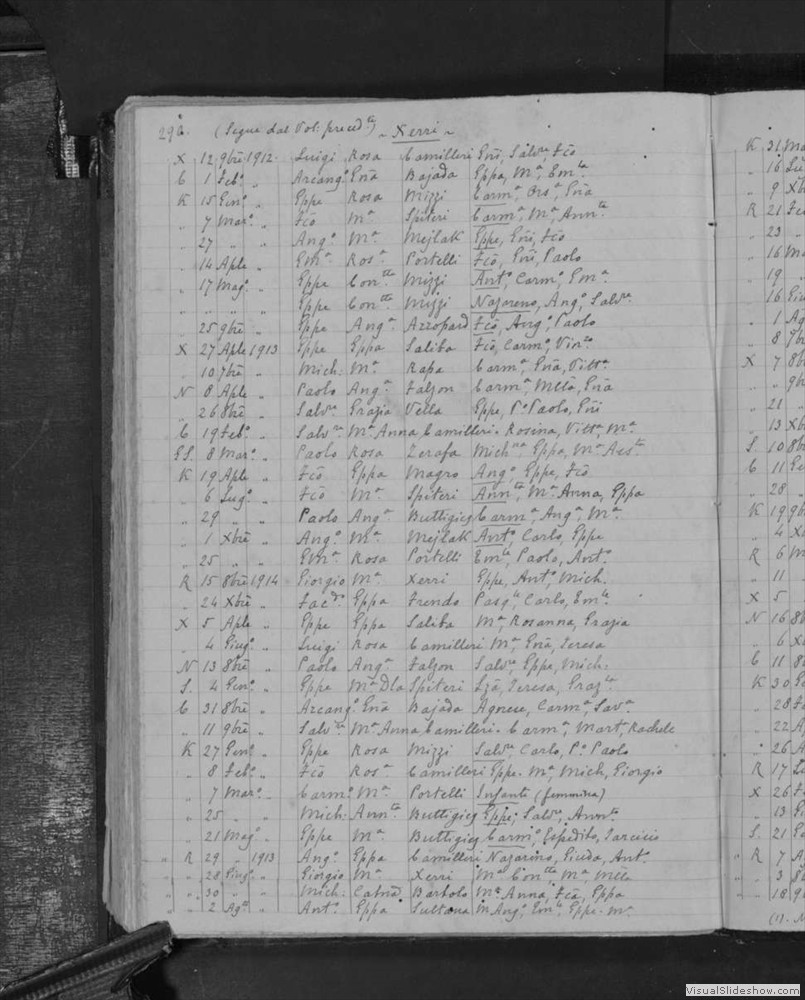 296. (Segue dal Vol. preced.te) - Xerri -
X 12 9bre 1912 Luigi Rosa Camilleri Gni, Salv.re, Fcõ
C 1 Feb.o „ Arcang.o Gnã Bajada Eppa, M.a, Em.la
K 15 Gen.o „ Eppe Rosa Mizzi Carm.a, Ors.a, Gnã
„ 7 Mar.o „ Fcõ M.a Spiteri Carm.a, M.a, Ann.ta
„ 27 „ „ Ang.o M.a Mejlak Eppe, Gni, Fcõ
„ 14 Aple „ Ros.a Portelli Fcõ, Gni, Paolo
„ 17 Mag.o „ Eppe Con.tta Mizzi Ant.o, Carm.o, Em.a
„ „ „ „ Eppe Con.tta Mizzi Nazareno, Ang.o, Salv.re
„ 25 9bre „ Eppe Ang.a Azzopard Fcõ, Ang.o, Paolo
X 27 Aple 1913 Eppe Eppa Saliba Fcõ, Carm.o, Vin.zo
„ 10 7bre „ Mich. M.a Rapa Carm.a, Gnã, Vitt.a
N 8 Aple „ Paolo Ang.a Falzon Carm.a, Mlla, Gnã
„ 26 8bre „ Salv.re Grazia Vella Eppe, P.o Paolo, Gni
C 19 Feb.o „ Salv.re M.a Anna Camilleri. Rosina, Vitt.a, M.a
GS. 8 Mar.o „ Paolo Rosa Zerafa Mich.na, Eppa, M.a Ass.ta
K 19 Aple „ Fcõ Eppa Magro Ang.o, Eppe, Fcõ
„ 6 Lug.o „ Fcõ M.a Spiteri Ann.ta, M.a Anna, Eppa
„ 29 „ „ Paolo Ang.a Buttigieg Carm.a, Ang.a, M.a
„ 1 Xbre „ Ang.o M.a Mejlak Ant.o, Carlo, Eppe
„ 25 „ „ Rosa Portelli Em.le, Paolo, Ant.o
R 15 8bre 1914 Giorgio M.a Xerri Eppe, Ant.o, Mich.
„ 24 Xbre „ Eppa Frendo Pasq.le, Carlo, Em.le
X 5 Aple „ Eppe Eppa Saliba M.a Rosanna, Grazia
„ 4 Giug.o „ Luigi Rosa Camilleri M.a, Gnã, Teresa
N 13 8bre „ Paolo Ang.a Falzon Salv.re, Eppe, Mich.
S. 4 Gen.o „ Eppe M.a Dla Spiteri Teresa, Graz.la
C 31 8bre „ Arcang.o Gnã Bajada Agnese, Carm.a, Sav.a
„ 11 9bre „ Salv.re M.a Anna Camilleri. Carm.a, Mart, Rachele
K 27 Gen.o „ Eppe Rosa Mizzi Salv.re, Carlo, P.o Paolo
„ 8 Feb.o „ Fcõ Ros.a Camilleri Eppe. M.a, Mich, Giorgio
„ 7 Mar.o „ Carm.o M.a Portelli Infanti (femmina)
„ 25 „ „ Mich. Ann.ta Buttigieg Eppe, Salv.re, Annt.o
„ 21 Mag.o „ Eppe M.a Buttigieg Carm.o, Espedito, Tarcisio
„ R 29 „ 1913 Ang.o Eppa Camilleri Nazarino, Giuda, Ant.o
„ „ 28 Giug.o „ Giorgio M.a Xerri M.a Con.tta, M.a Mlla
„ „ 30 „ „ Mich. Catna Bartolo M.a Anna, Fcõ, Eppa
„ „ 2 Ag.to „ Ant.o Eppa Sultana M. Ang.o, Em.le, Eppe. M.a
K 31 Ma
„ 16 Lu
„ 9 Xb
R 21 Fe
„ 23 „
„ 16 Ma
„ 19 „
„ 16 Giu
„ 1 Ag
„ 8 7b
X 7 8b
„ „ 9b
„ 21
„ 13 Xb
S. 10 8b
C 11 Ge
„ 28 „
K 19 9b
„ 4 Xb
R 6 M
„ 11
X 5
N 16 8b
„ 6 X
C 11 8
K 30 G
„ 28 F
„ 22 A
„ 26 A
R 17 L
X 26 F
„ 13 G
S. 21 G
„ R 7 A
„ „ 3 8b
„ „ 18 9
VisualSlideshow.com